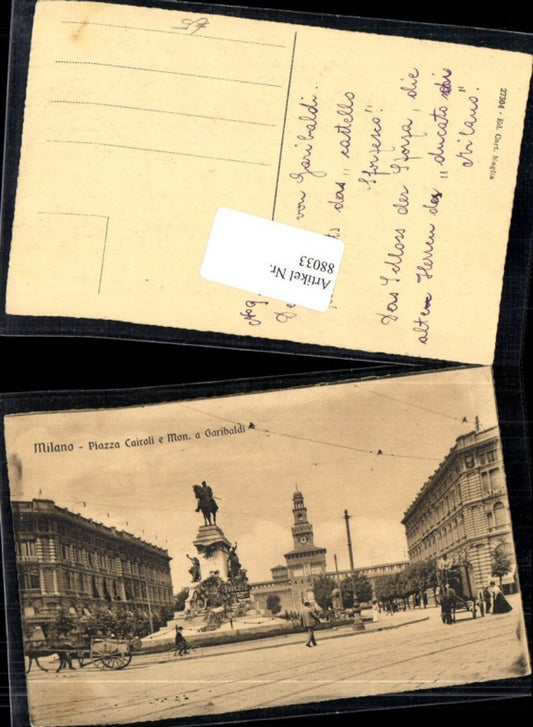 45
27204 - Ed. Cart. Maglia
von Garibaldi.
das "castello
Sforzesco".
Das Schloss der Sforza, die
alten Herren des "ducato di
Milano".
Artikel Nr.
88033
Milano - Piazza Cairoli e Mon. a Garibaldi